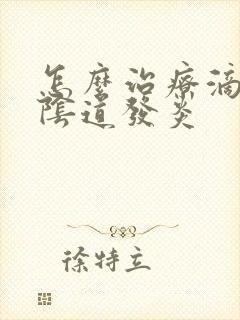 怎麼治療滴
陰道發炎
徐特立